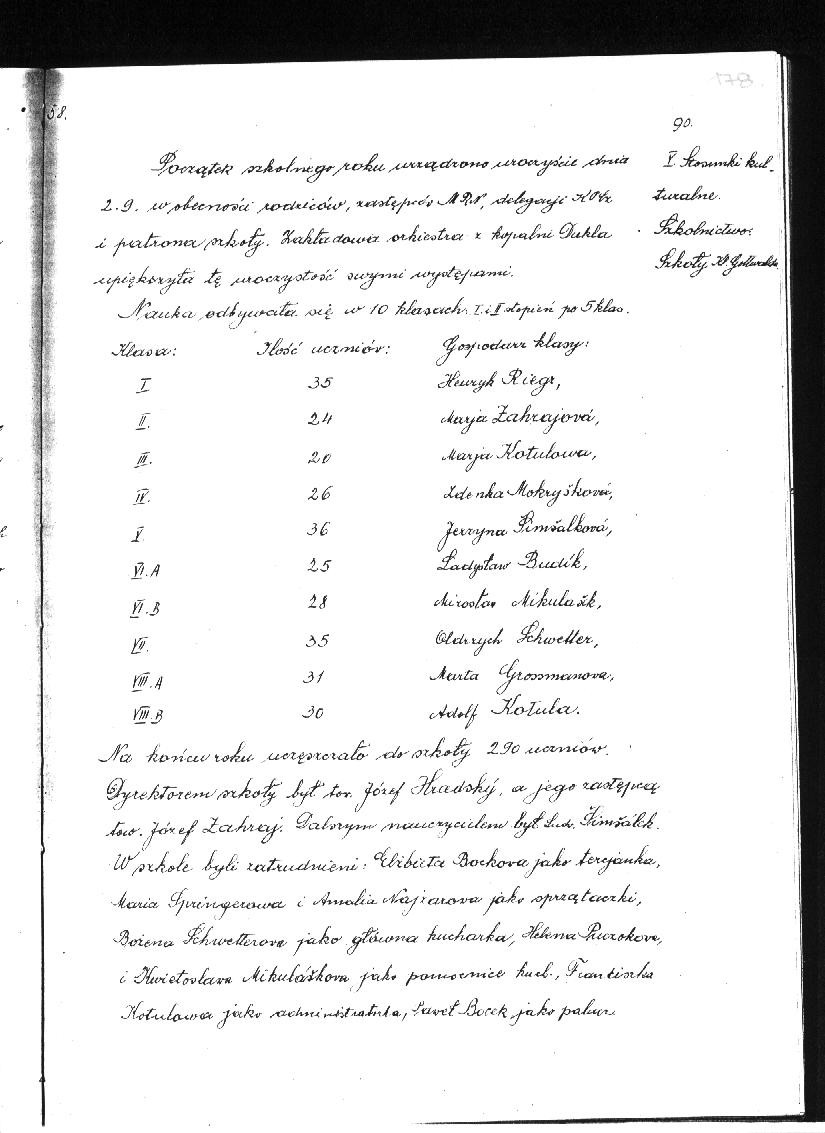 178.
58.
90.
V. Stosunki kul-
turalne.
Szkolnictwo:
Szkoły Kl. Gottwalda
Początek szkolnego roku urządzono uroczyście dnia
2.9. w obecności rodziców, zastępców MRN, delegacji KPCz
i patrona szkoły. Zakładowa orkiestra z kopalni Dukla
upiększyła tę uroczystość swymi występami.
Nauka odbywała się w 10 klasach. I i II stopień po 5 klas.
Klasa: Ilość uczniów: Gospodarz klasy:
I 35 Henryk Riegr,
II. 24 Marja Zahrajová,
III. 20 Marja Kotulowa,
IV. 26 Zdenka Mokryšková,
V. 36 Jerzyna Šimšalková,
VI.A 25 Ladysław Budík,
VI.B 28 Mirosław Mikulašik,
VII. 35 Oldrzych Schwetter,
VIII.A 31 Marta Grossmanova,
VIII.B 30 Adolf Kotula.
Na końcu roku uczęszczało do szkoły 290 uczniów.
Dyrektorem szkoły był tow. Józef Hradský, a jego zastępcą
tow. Józef Zahraj. Dalszym nauczycielem był Lud. Šimšálek.
W szkole byli zatrudnieni: Elżbieta Bockova jako tercjanka,
Maria Springerowa i Amalia Najzarova jako sprzątaczki,
Bożena Schwetterova jako główna kucharka, Helena
i Kwietoslava Mikulášková jako pomocnice kuch., Franciszka
Kotulowa jako administratorka, Paweł Bocek jako palacz.